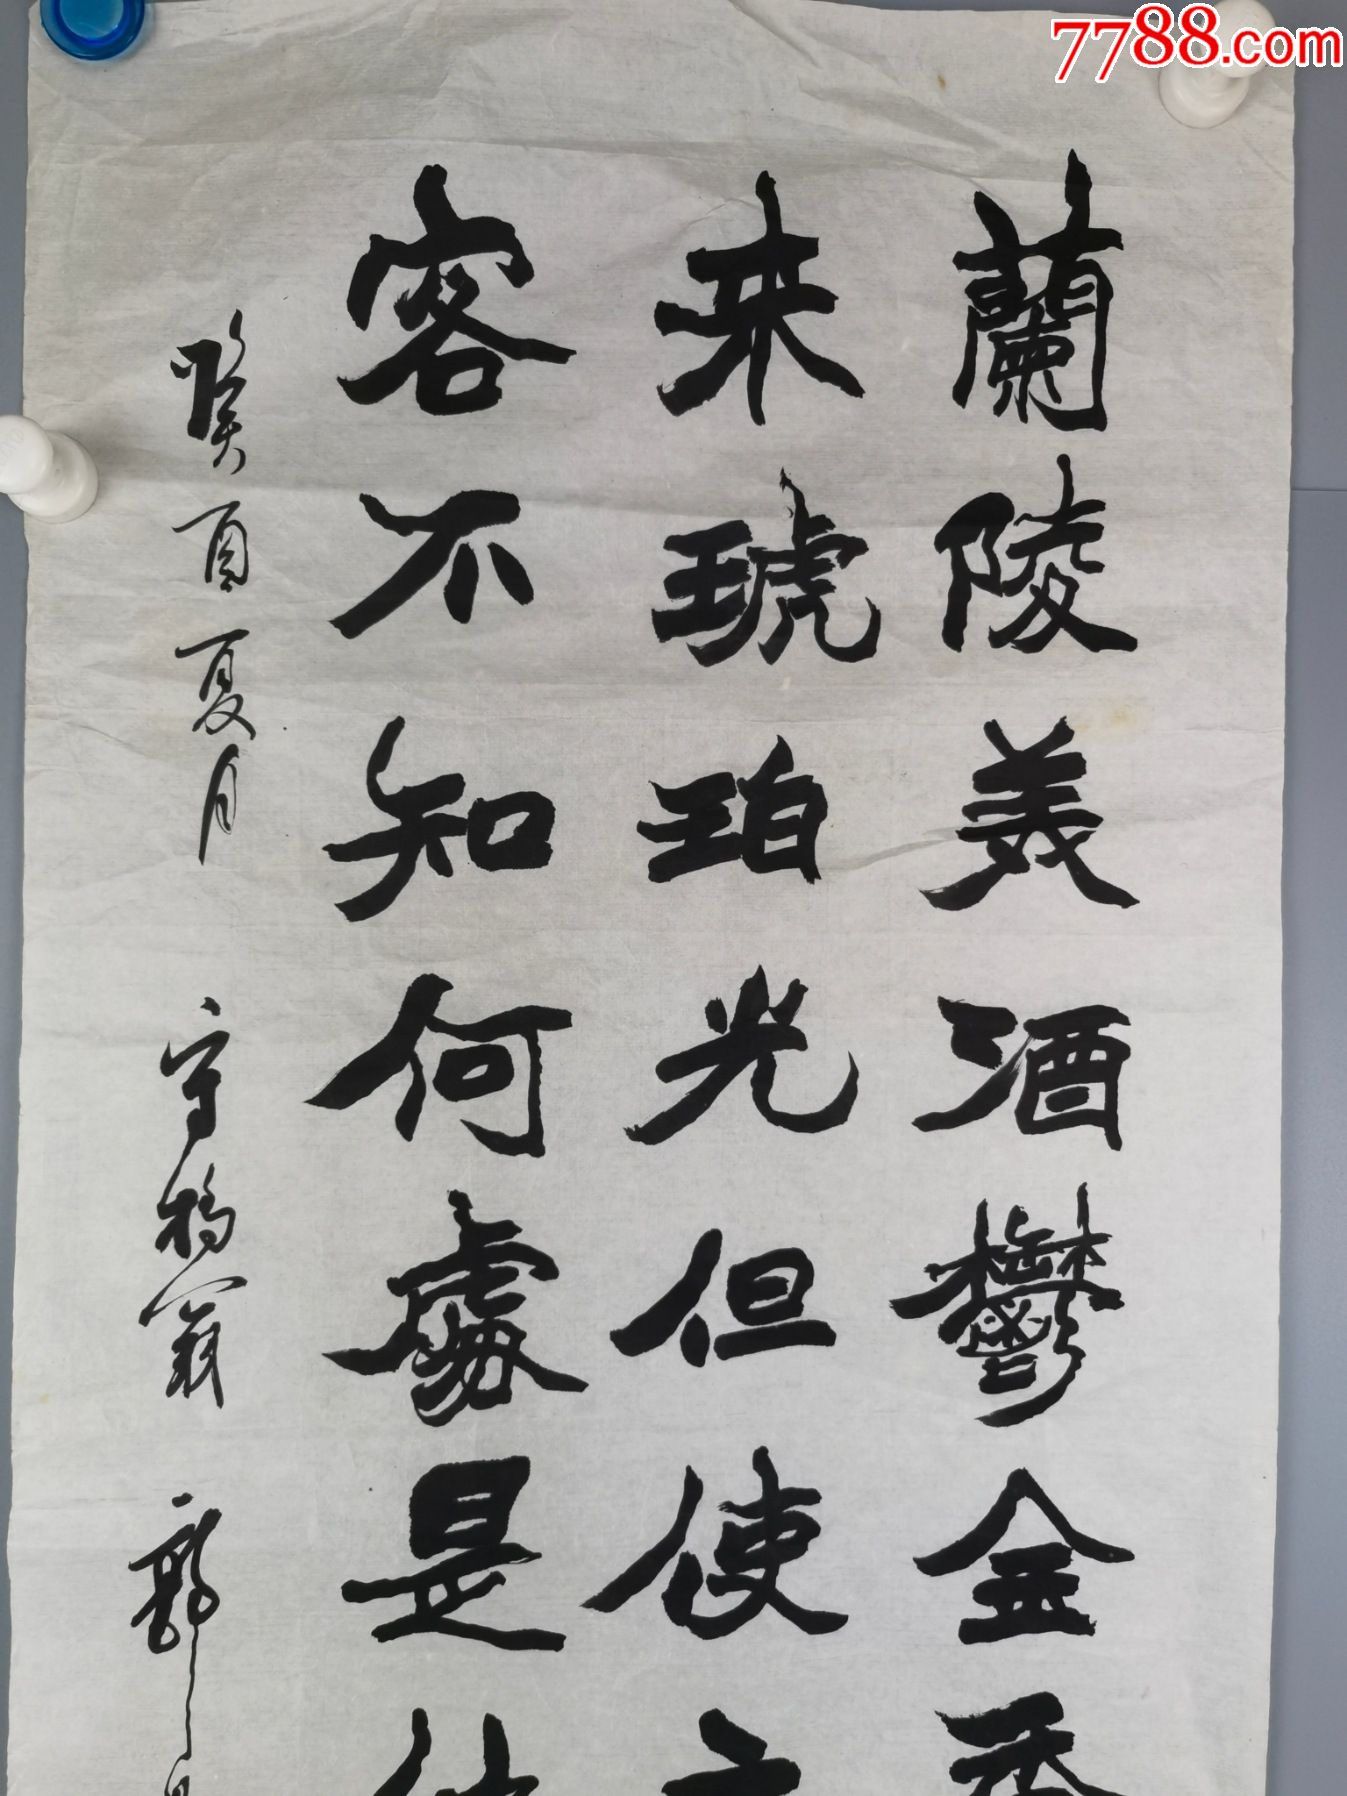 7788.com
蘭陵美酒鬱金香
来琥珀光但使主
客不知何處是他
癸酉夏月